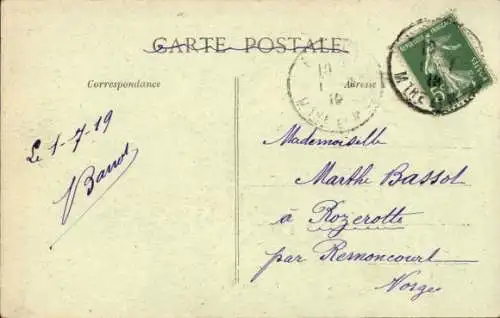 CARTE POSTALE
Correspondance
Adresse
Le 1-7-19
Mademoiselle
Marthe Bassot
à Rozerotte
par Remoncourt
Vosges